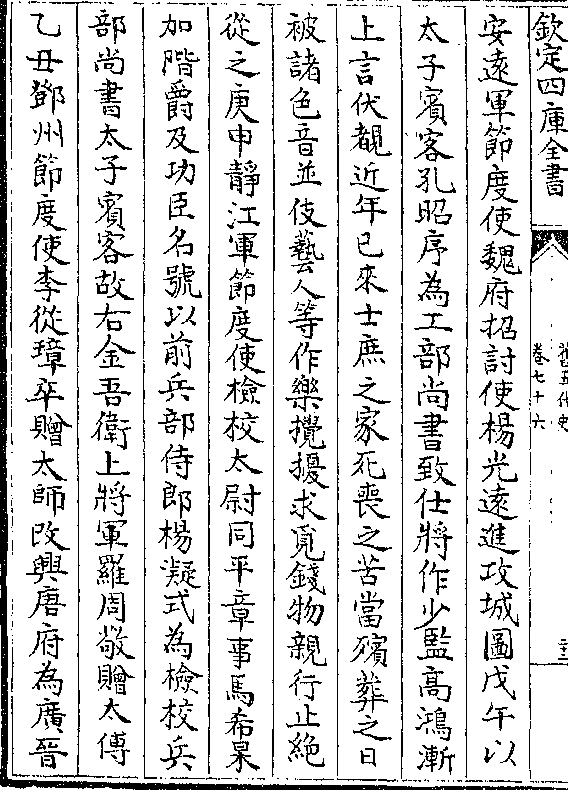 欽定四庫全書
舊五代史
卷七十六
安遠軍節度使魏府招討使楊光遠進攻城圖戊午以
太子賓客孔昭序為工部尚書致仕將作少監高鴻漸
上言伏覩近年已來士庶之家死喪之苦當殯葬之日
被諸色音並伎藝人等作樂攪擾求覓錢物親行止絶
從之庚申靜江軍節度使檢校太尉同平章事馬希杲
加階爵及功臣名號以前兵部侍郎楊凝式為檢校兵
部尚書太子賓客故右金吾衛上將軍羅周敬贈太傅
乙丑鄧州節度使李從璋卒贈太師改興唐府為廣晉